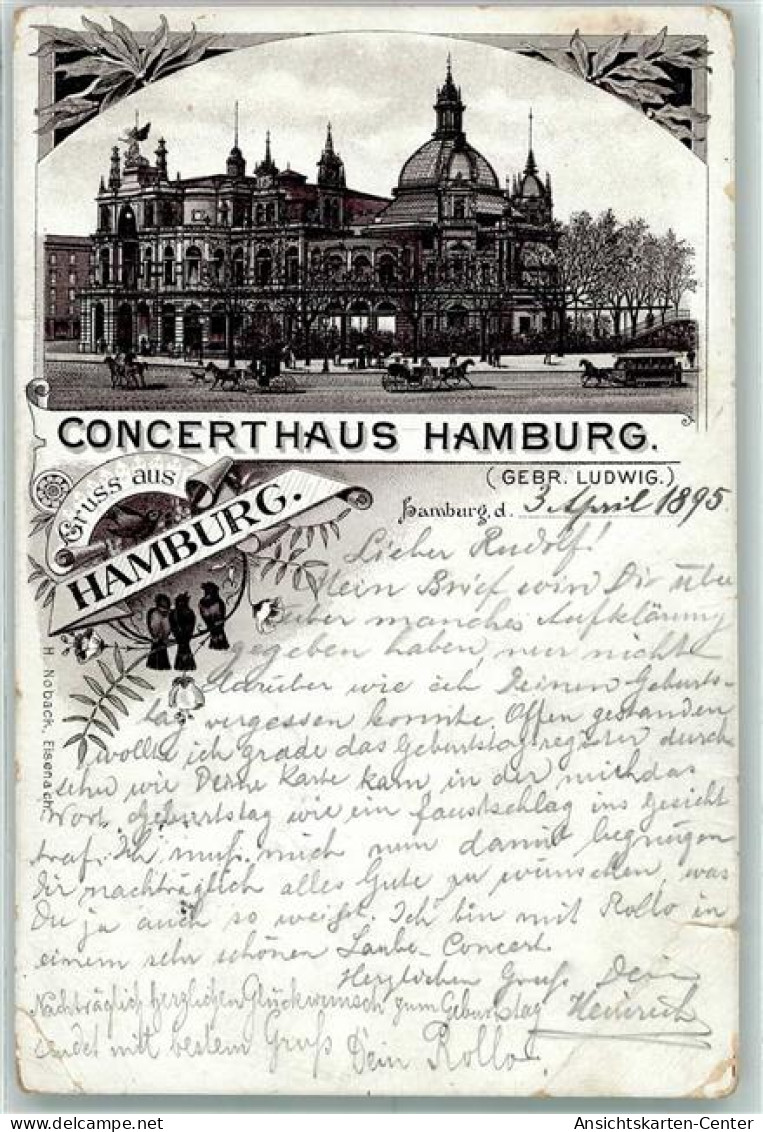 CONCERTHAUS HAMBURG.
(GEBR. LUDWIG.)
Gruss aus
HAMBURG.
Hamburg, d. 3 April 1895
Lieber Rudolf!
Mein Brief wird Dir über
über manches Aufklärung
gegeben haben, nur nicht
darüber wie ich Deinen Geburts-
tag vergessen konnte. Offen gestanden
wollte ich grade das Geburtstagsregister durch
sehn wie Deine Karte kam in der mich das
Wort Geburtstag wie ein Faustschlag ins Gesicht
traf. Ich muß mich nun damit begnügen
Dir nachträglich alles Gute zu wünschen, was
Du ja auch so weißt. Ich bin mit Rollo in
einem sehr schönen Laube-Concert.
Herzlichen Gruß Dein
Heinrich
Nachträglich herzlichen Glückwunsch zum Geburtstag
sendet mit bestem Gruß Dein Rollo.
H. Noback, Eisenach.
Ansichtskarten-Center